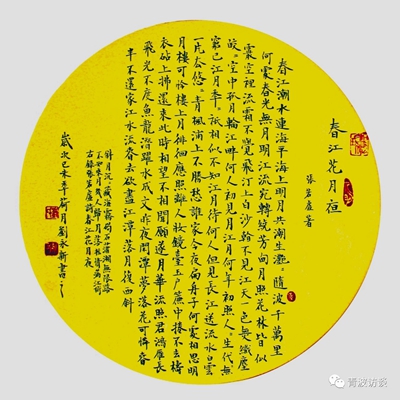 春江花月夜
張若虛著
春江潮水連海平海上明月共潮生灩灩隨波千萬里
何處春光無月明江流宛轉繞芳甸月照花林皆似
霰空裡流霜不覺飛汀上白沙看不見江天一色無纖塵
皎〻空中孤月輪江畔何人初見月江月何年初照人〻生代〻無
窮已江月年〻祇相似不知江月待何人但見長江送流水白雲
一片去悠〻青楓浦上不勝愁誰家今夜扁舟子何處相思明
月樓可憐樓上月徘徊應照離人妝鏡臺玉戶簾中捲不去擣
衣砧上拂還來此時相望不相聞願逐月華流照君鴻雁長
飛光不度魚龍潛躍水成文昨夜閒潭夢落花可憐春
半不還家江水流春去欲盡江潭落月復西斜
斜月沉〻藏海霧碣石瀟湘無限路
不知乘月幾人歸落月搖情滿江樹
右錄張若虛詩春江花月夜
歲次己未年荷月劉永新書
青波访谈